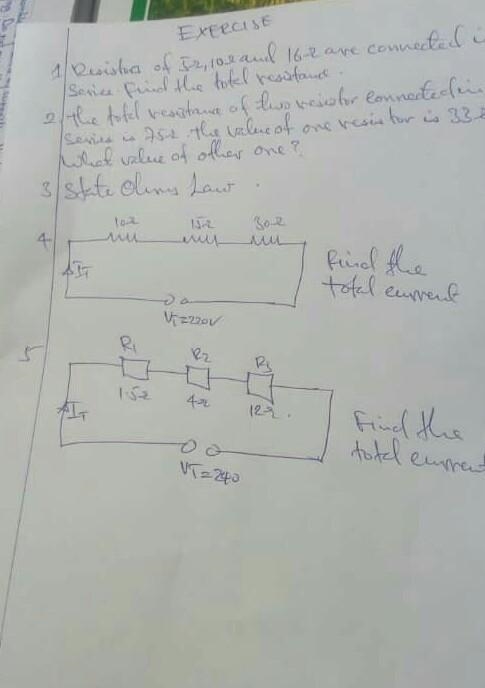 EXERCISE
1 Resistors of 5Ω, 10Ω and 16Ω are connected i
Series. Find the total resistance.
2 The total resistance of two resistor connected in
Series is 75Ω. The value of one resistor is 33Ω
What value of other one?
3 State Ohms Law.
4
10Ω 15Ω 30Ω
IT
VT=220V
Find the
total current
5
R1 R2 R3
1.5Ω 4Ω 12Ω
IT
VT=240
Find the
total current